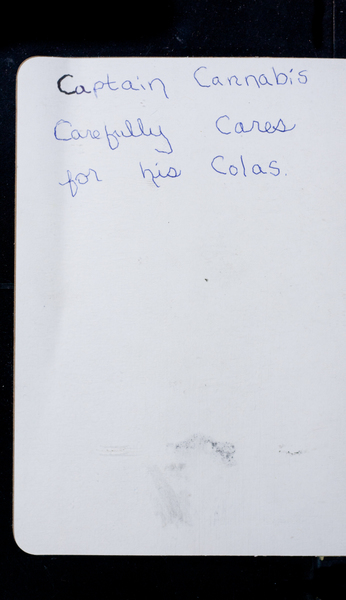 Captain Cannabis
Carefully Cares
for his Colas.